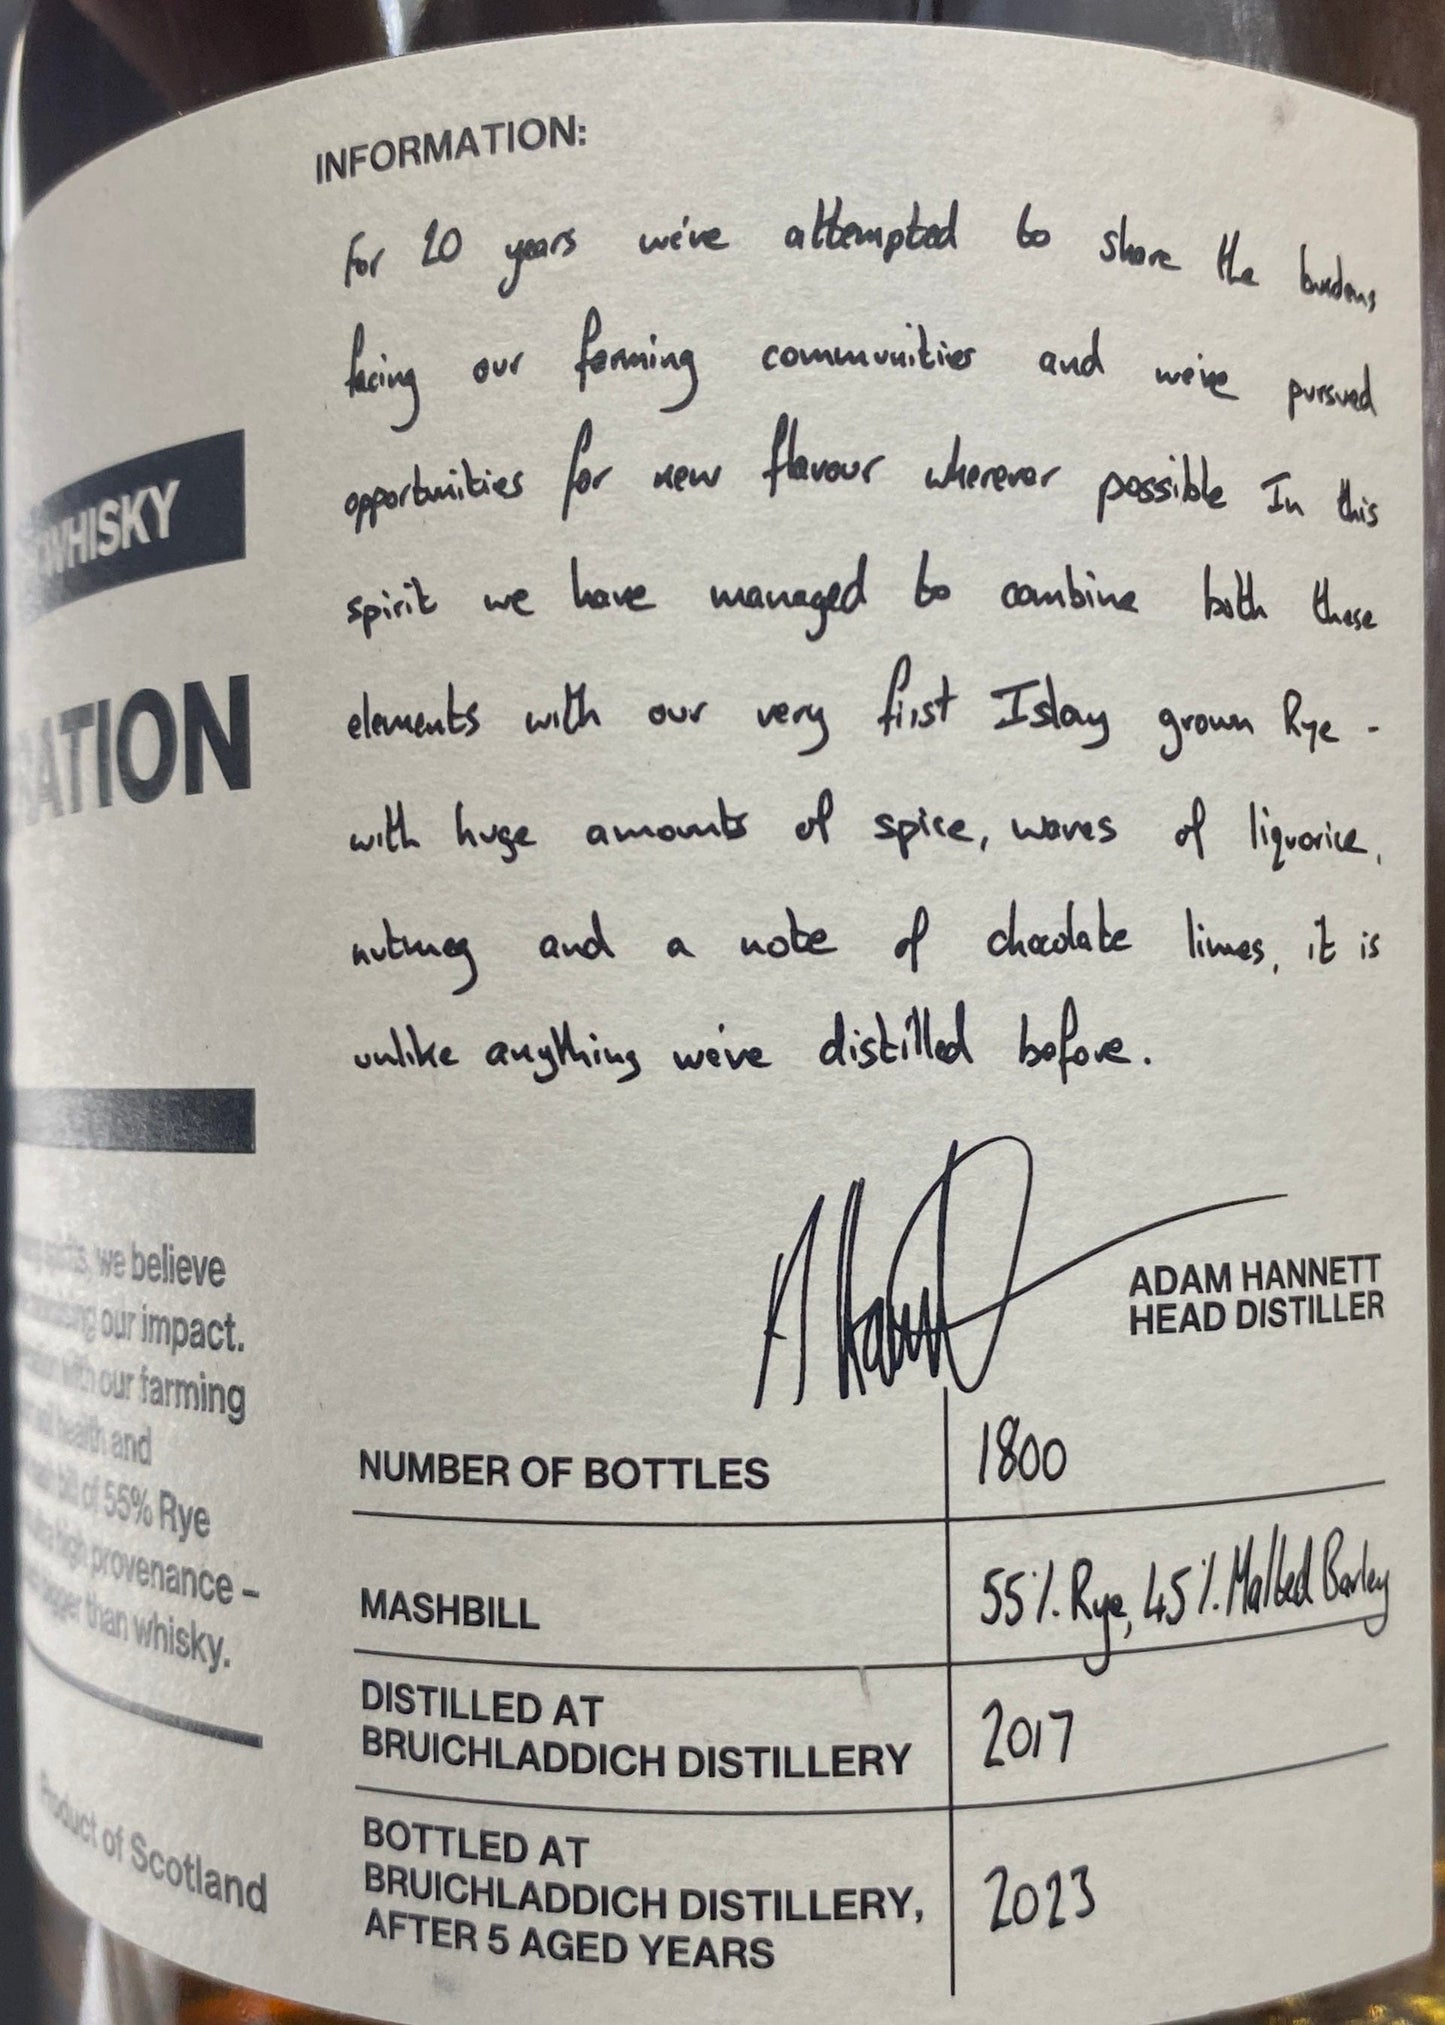 INFORMATION:
For 20 years we've attempted to share the burdens
facing our farming communities and we've pursued
opportunities for new flavour wherever possible In this
spirit we have managed to combine both these
elements with our very first Islay grown Rye -
with huge amounts of spice, waves of liquorice,
nutmeg and a note of chocolate limes, it is
unlike anything we've distilled before.
ADAM HANNETT
HEAD DISTILLER
NUMBER OF BOTTLES 1800
MASHBILL 55% Rye, 45% Malted Barley
DISTILLED AT
BRUICHLADDICH DISTILLERY 2017
BOTTLED AT
BRUICHLADDICH DISTILLERY, 2023
AFTER 5 AGED YEARS
WHISKY
RATION
we believe
our impact.
with our farming
health and
bill of 55% Rye
high provenance –
than whisky.
Product of Scotland